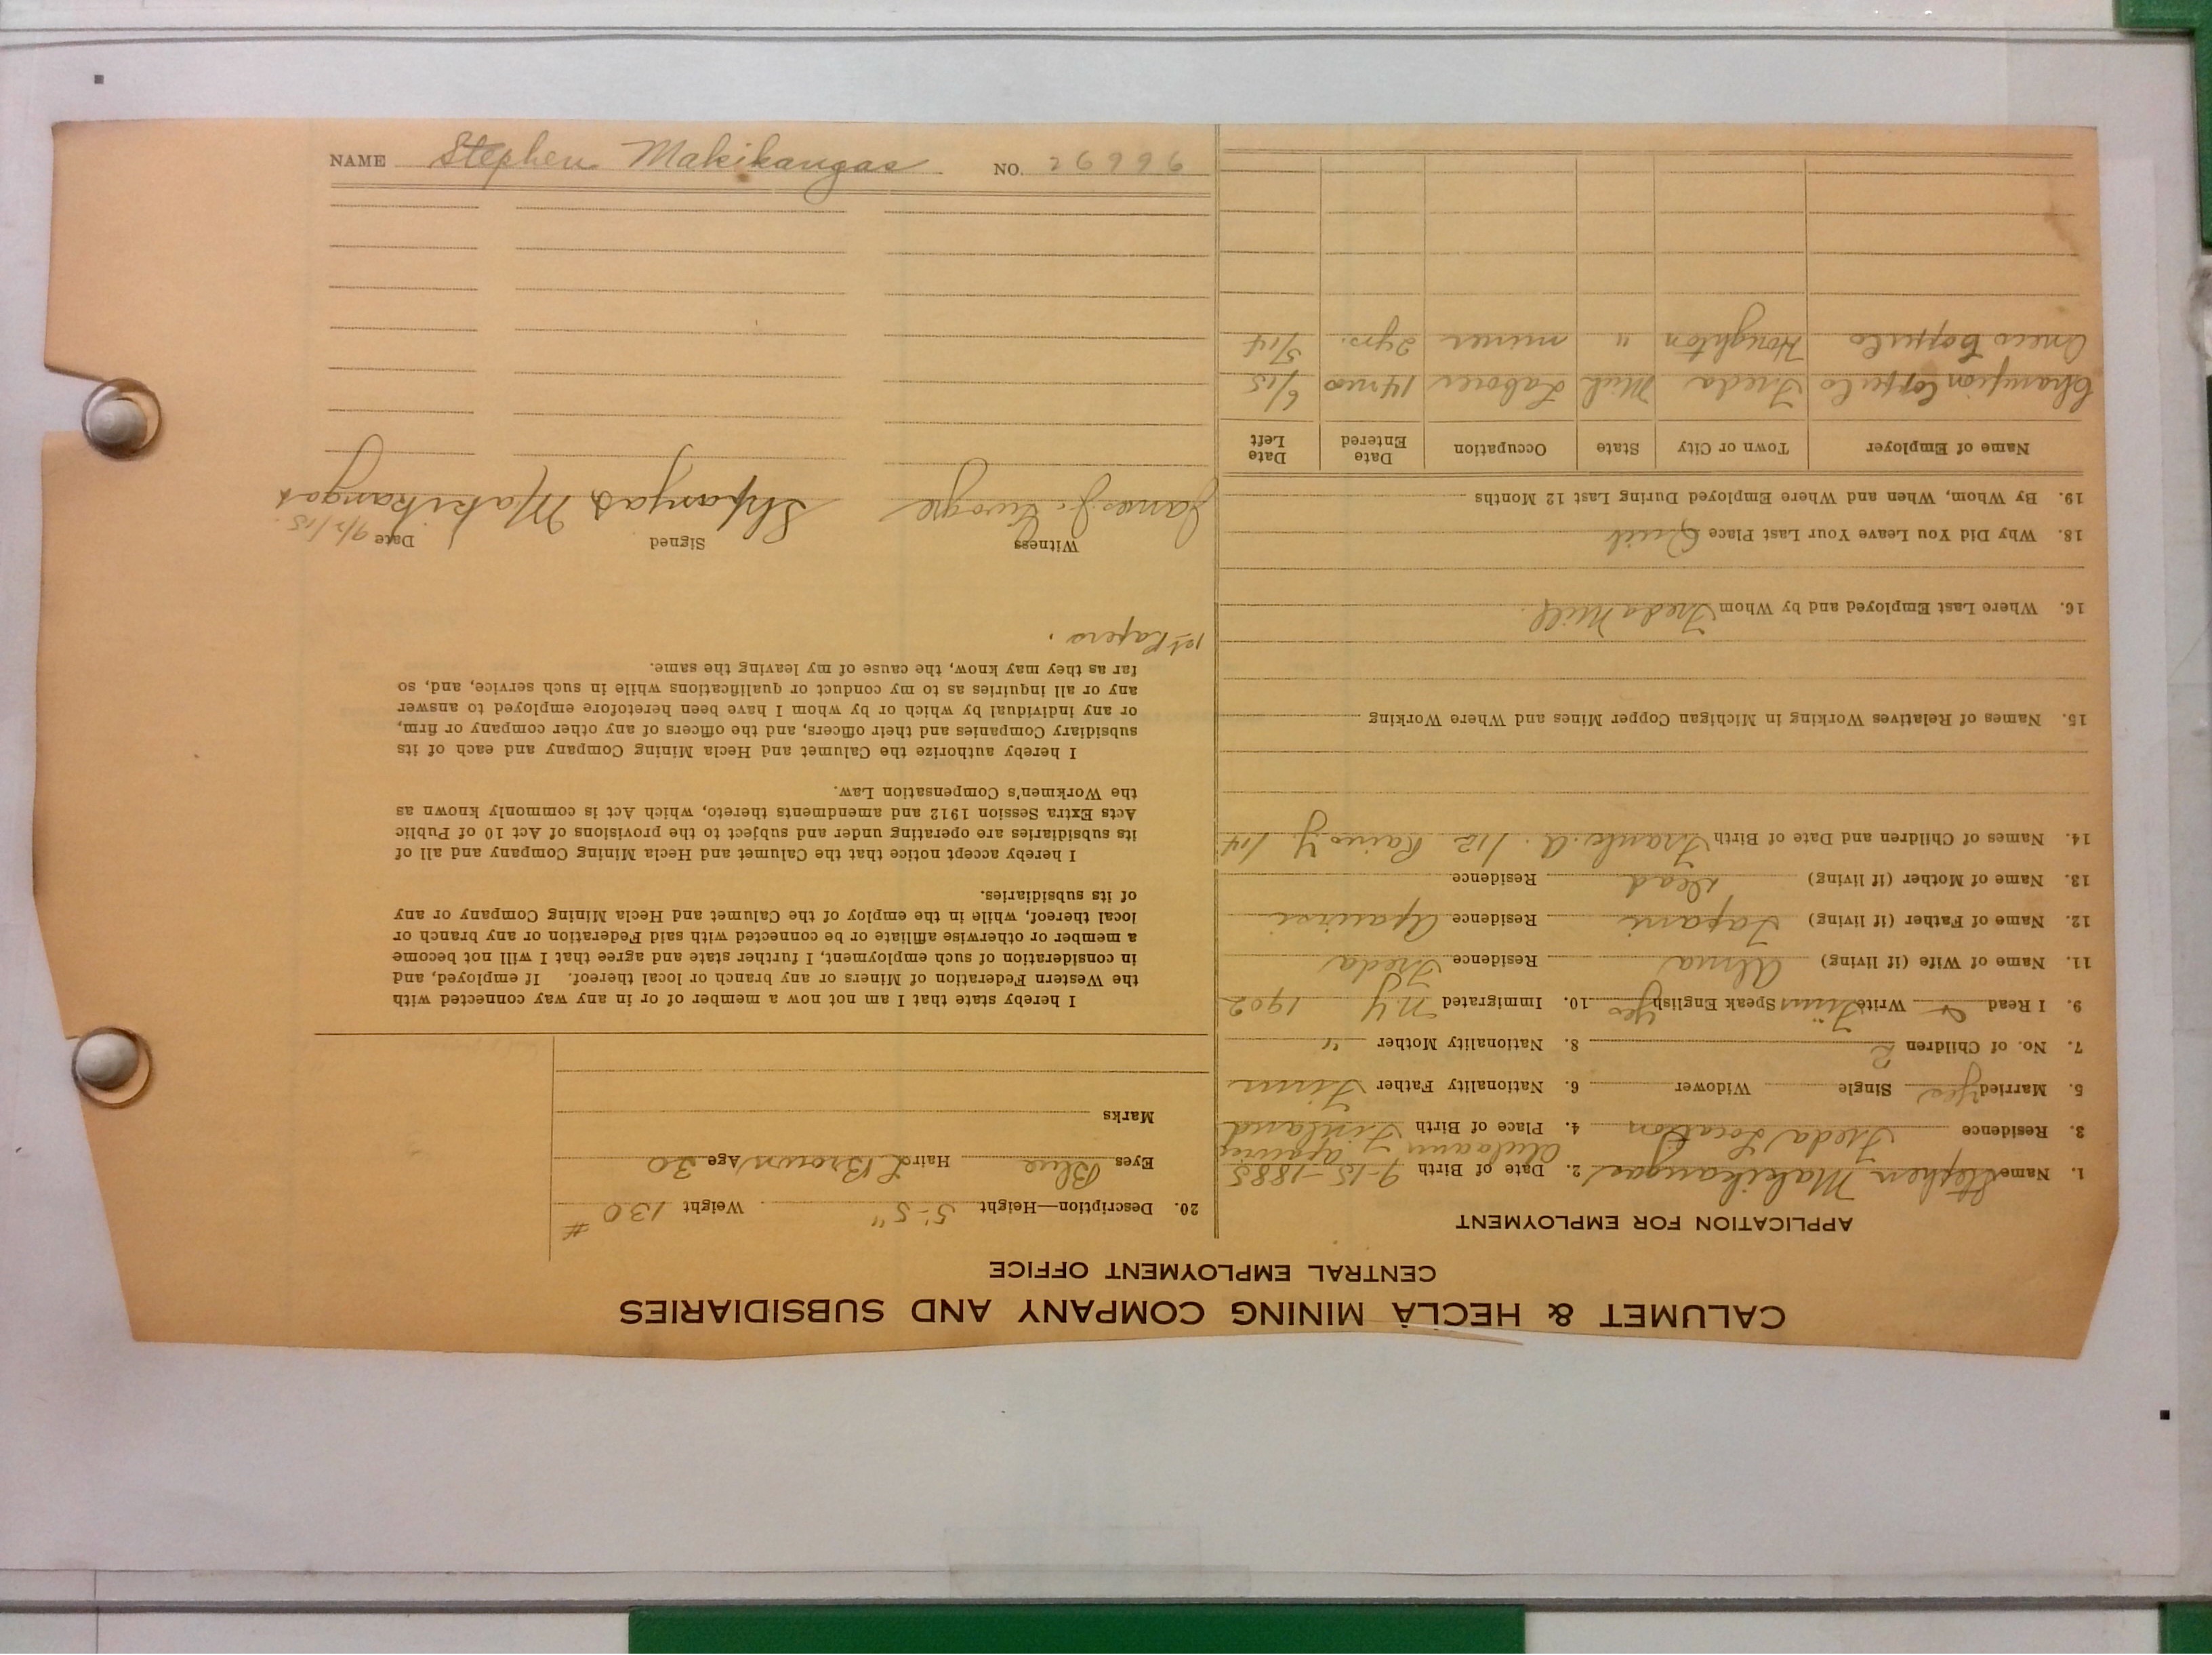 NAME Stephen Makikangas NO. 26996
CALUMET & HECLA MINING COMPANY AND SUBSIDIARIES
CENTRAL EMPLOYMENT OFFICE
APPLICATION FOR EMPLOYMENT
1. Name Stephen Makikangas 2. Date of Birth 9-15-1885
3. Residence Freda Location 4. Place of Birth Finland
5. Married yes Single Widower 6. Nationality Father Finn
7. No. of Children 2 8. Nationality Mother "
9. I Read & Write Finnis Speak English yes 10. Immigrated N.Y 1902
11. Name of Wife (if living) Alma Residence Freda
12. Name of Father (if living) Tapani Residence
13. Name of Mother (if living) Dead Residence
14. Names of Children and Date of Birth Frank.A. /12 Raino Y /14
15. Names of Relatives Working in Michigan Copper Mines and Where Working
16. Where Last Employed and by Whom Freda Mill.
18. Why Did You Leave Your Last Place Quit
19. By Whom, When and Where Employed During Last 12 Months
Name of Employer Town or City State Occupation Date Entered Date Left
Champion Copper Co Freda Mich Laborer 14 mos 6/15
Copper Co Houghton " miner 2 yrs. 5/14
20. Description—Height 5'-5" Weight 130 #
Eyes Blue Hair L Brown Age 30
Marks
I hereby state that I am not now a member of or in any way connected with
the Western Federation of Miners or any branch or local thereof. If employed, and
in consideration of such employment, I further state and agree that I will not become
a member or otherwise affiliate or be connected with said Federation or any branch or
local thereof, while in the employ of the Calumet and Hecla Mining Company or any
of its subsidiaries.
I hereby accept notice that the Calumet and Hecla Mining Company and all of
its subsidiaries are operating under and subject to the provisions of Act 10 of Public
Acts Extra Session 1912 and amendments thereto, which Act is commonly known as
the Workmen's Compensation Law.
I hereby authorize the Calumet and Hecla Mining Company and each of its
subsidiary Companies and their officers, and the officers of any other company or firm,
or any individual by which or by whom I have been heretofore employed to answer
any or all inquiries as to my conduct or qualifications while in such service, and, so
far as they may know, the cause of my leaving the same.
1st Papers.
Witness Signed Date 9/2/15.
James J. Makikangas